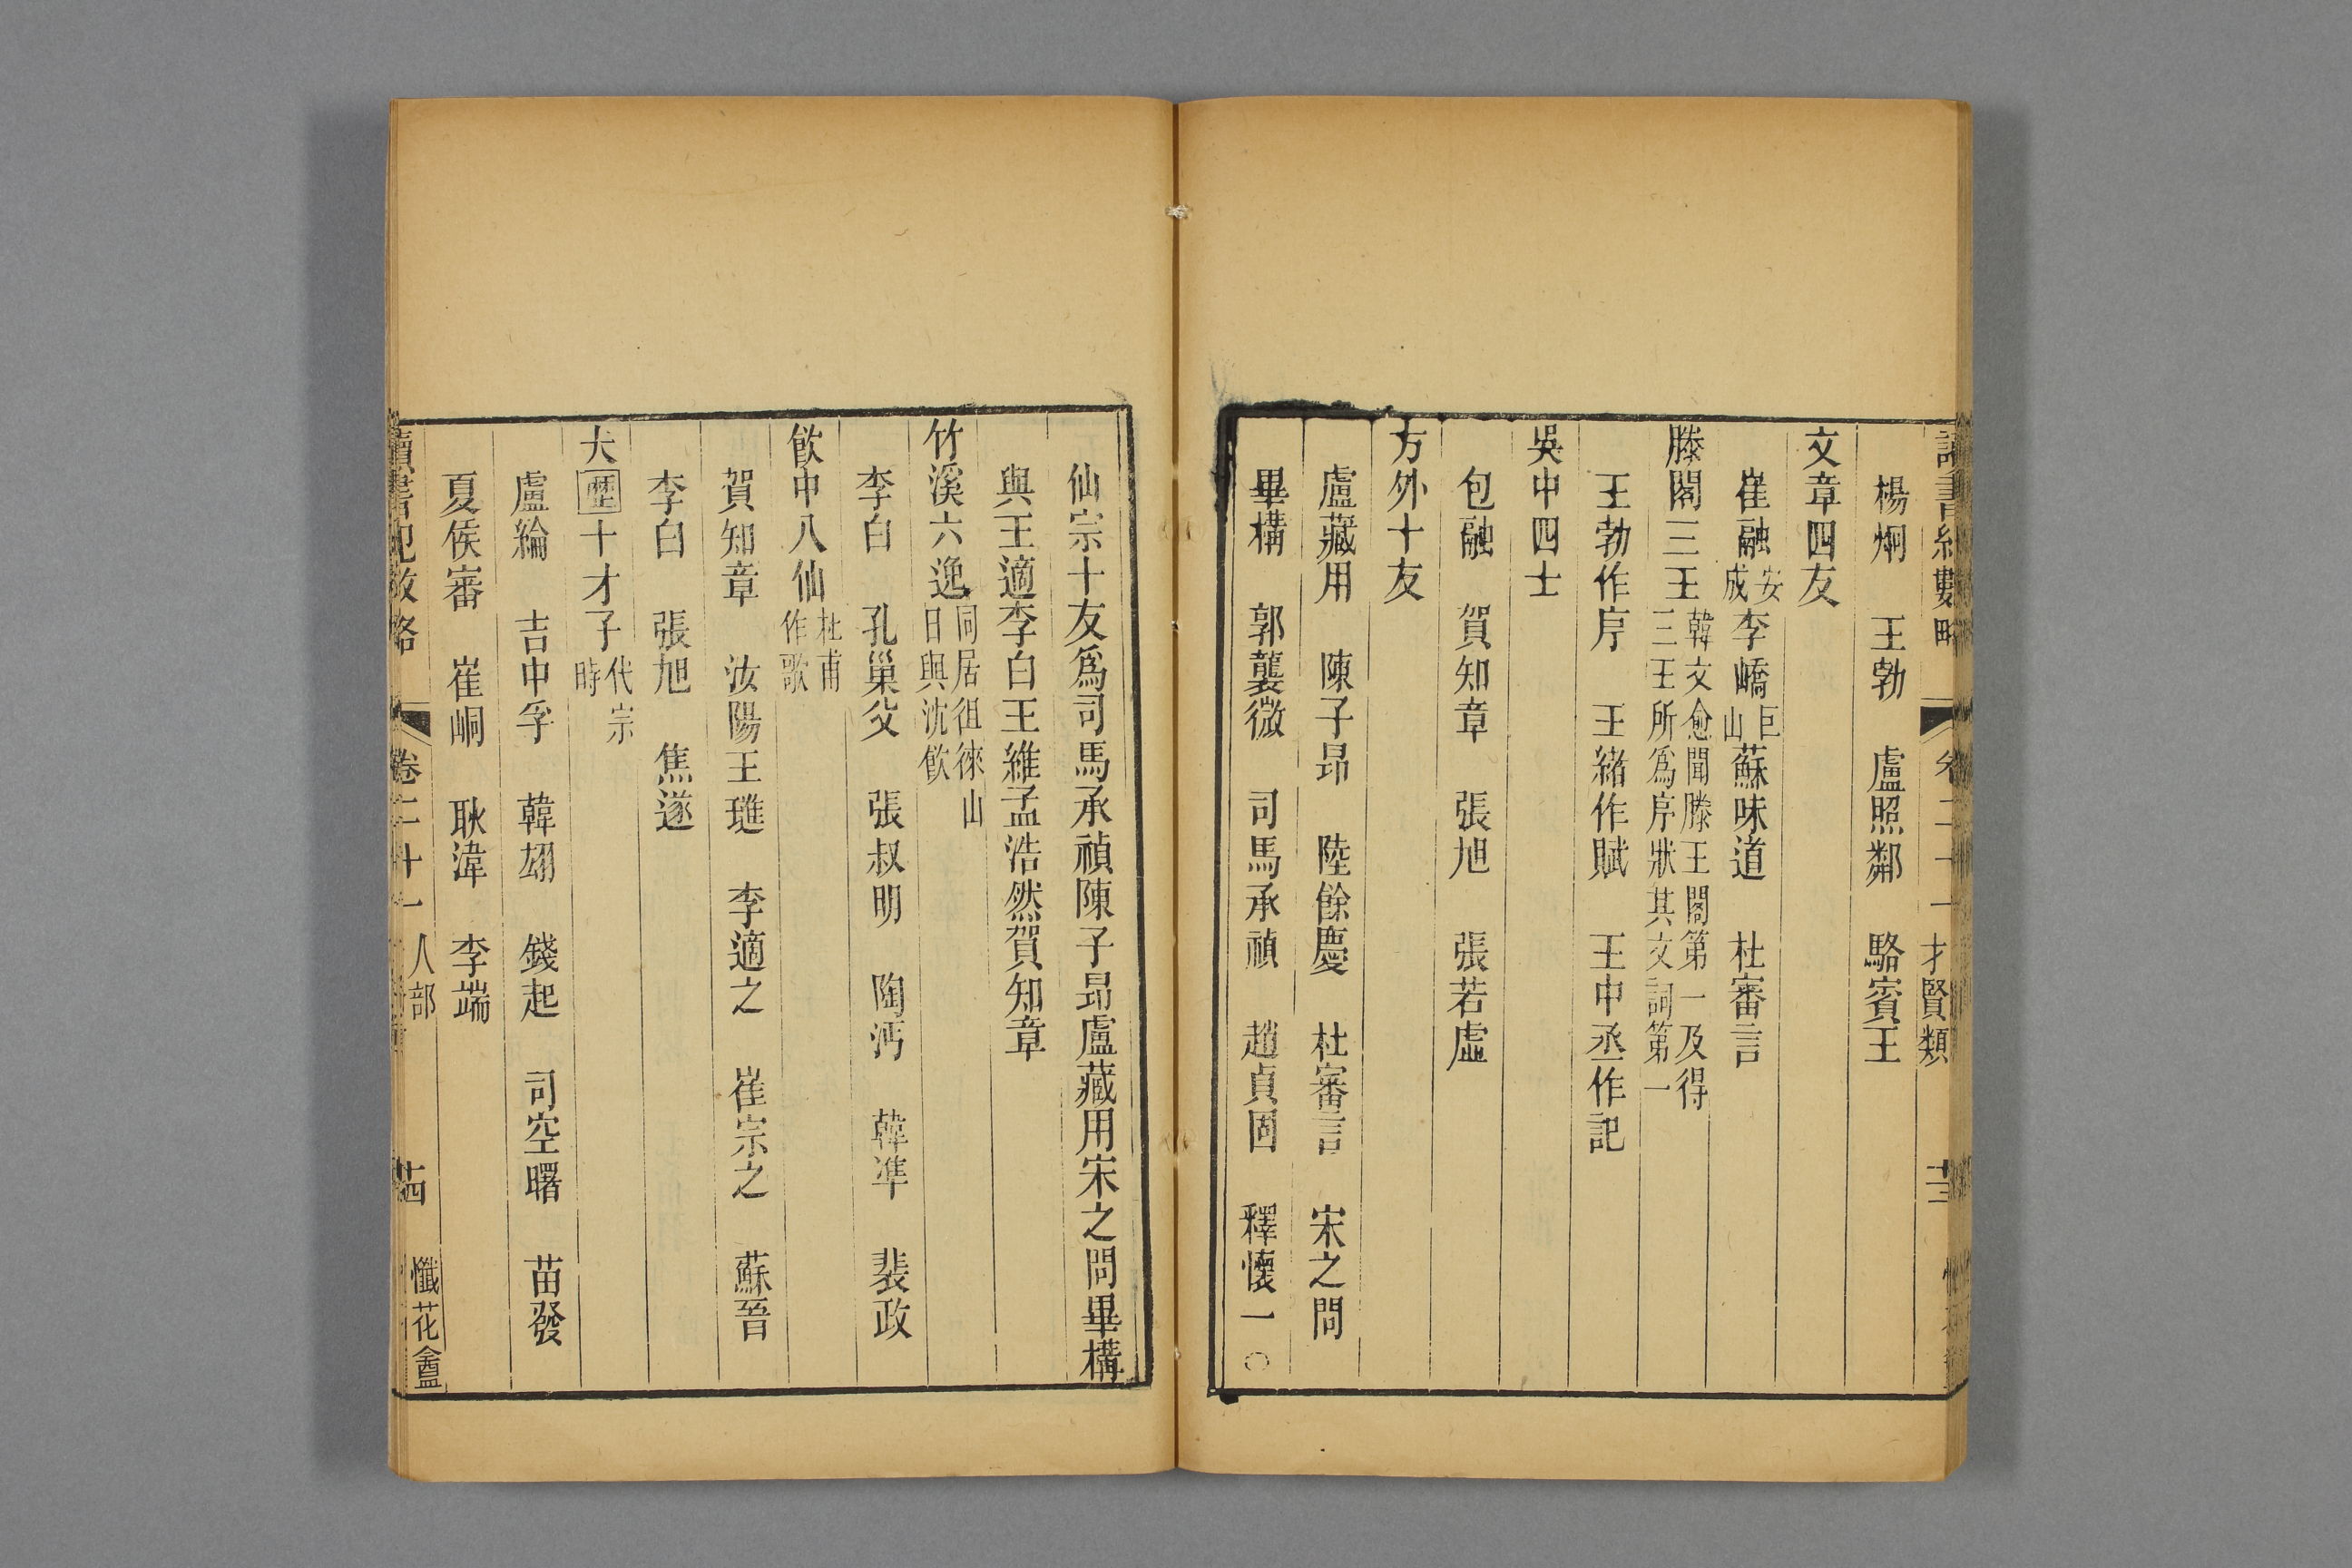 讀書紀數略 卷二十一 才賢類 十三
楊炯 王勃 盧照鄰 駱賓王
文章四友
崔融安成李嶠巨山蘇味道 杜審言
滕閣三王韓文愈聞滕王閣第一及得三王所爲序狀其文詞第一
王勃作序 王緒作賦 王中丞作記
吳中四士
包融 賀知章 張旭 張若虛
方外十友
盧藏用 陳子昻 陸餘慶 杜審言 宋之問
畢構 郭襲微 司馬承禎 趙貞固 釋懷一〇
仙宗十友爲司馬承禎陳子昻盧藏用宋之問畢構
與王適李白王維孟浩然賀知章
竹溪六逸同居徂徠山日與沈飮
李白 孔巢父 張叔明 陶沔 韓凖 裴政
飮中八仙杜甫作歌
賀知章 汝陽王璡 李適之 崔宗之 蘇晉
李白 張旭 焦遂
大歷十才子代宗時
盧綸 吉中孚 韓翃 錢起 司空曙 苗發
夏侯審 崔峒 耿湋 李端
讀書紀數略 卷二十一 人部 十四 懺花盦